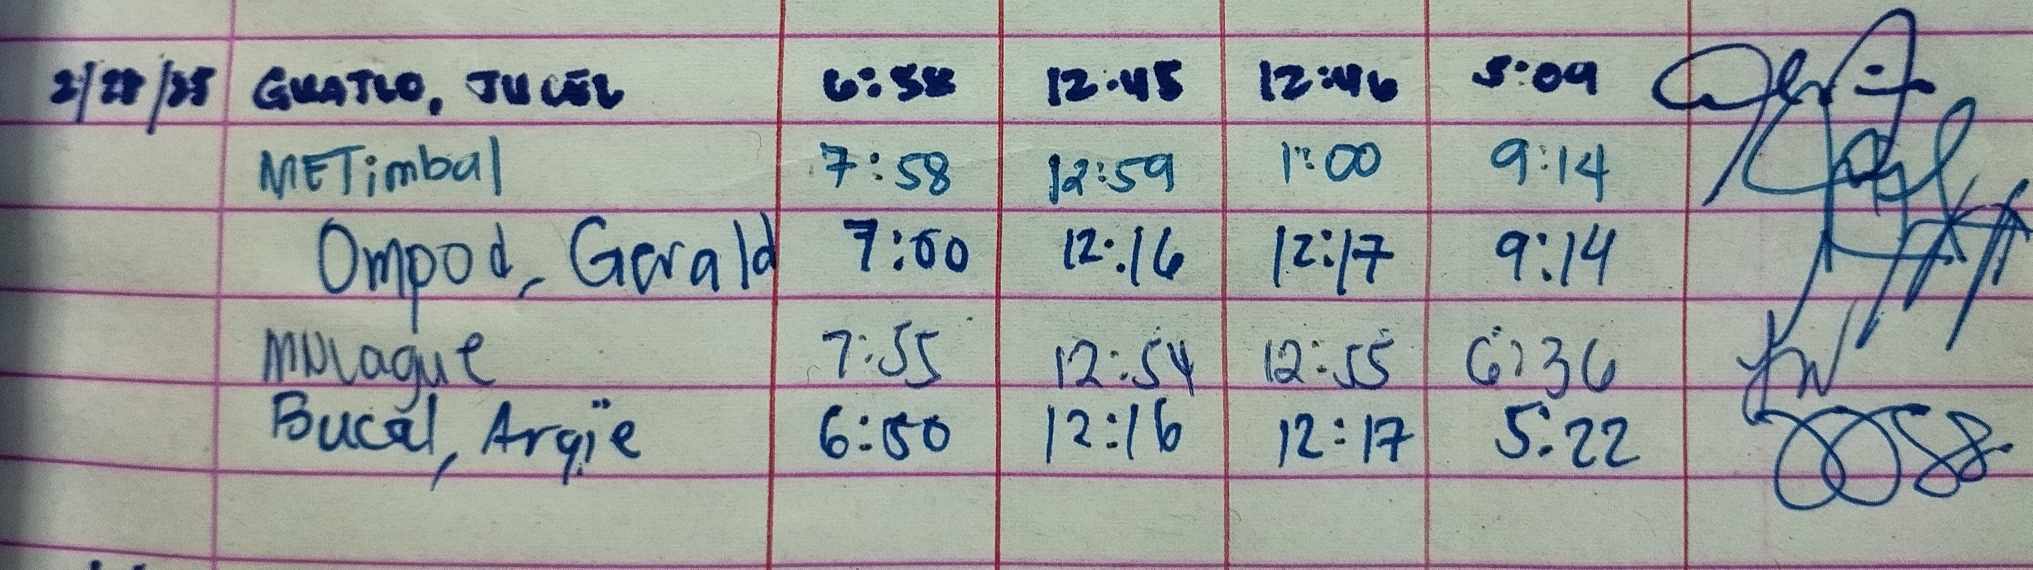 2/28/25 GUATLO, JUCEL 6:58 12:45 12:46 5:09
METimbal 7:58 12:59 1:00 9:14
Ompod, Gerald 7:00 12:16 12:17 9:14
MNLague 7:55 12:54 12:55 6:36
Bucal, Argie 6:50 12:16 12:17 5:22